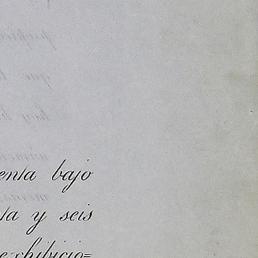 enta bajo
ta y seis
exhibicio=